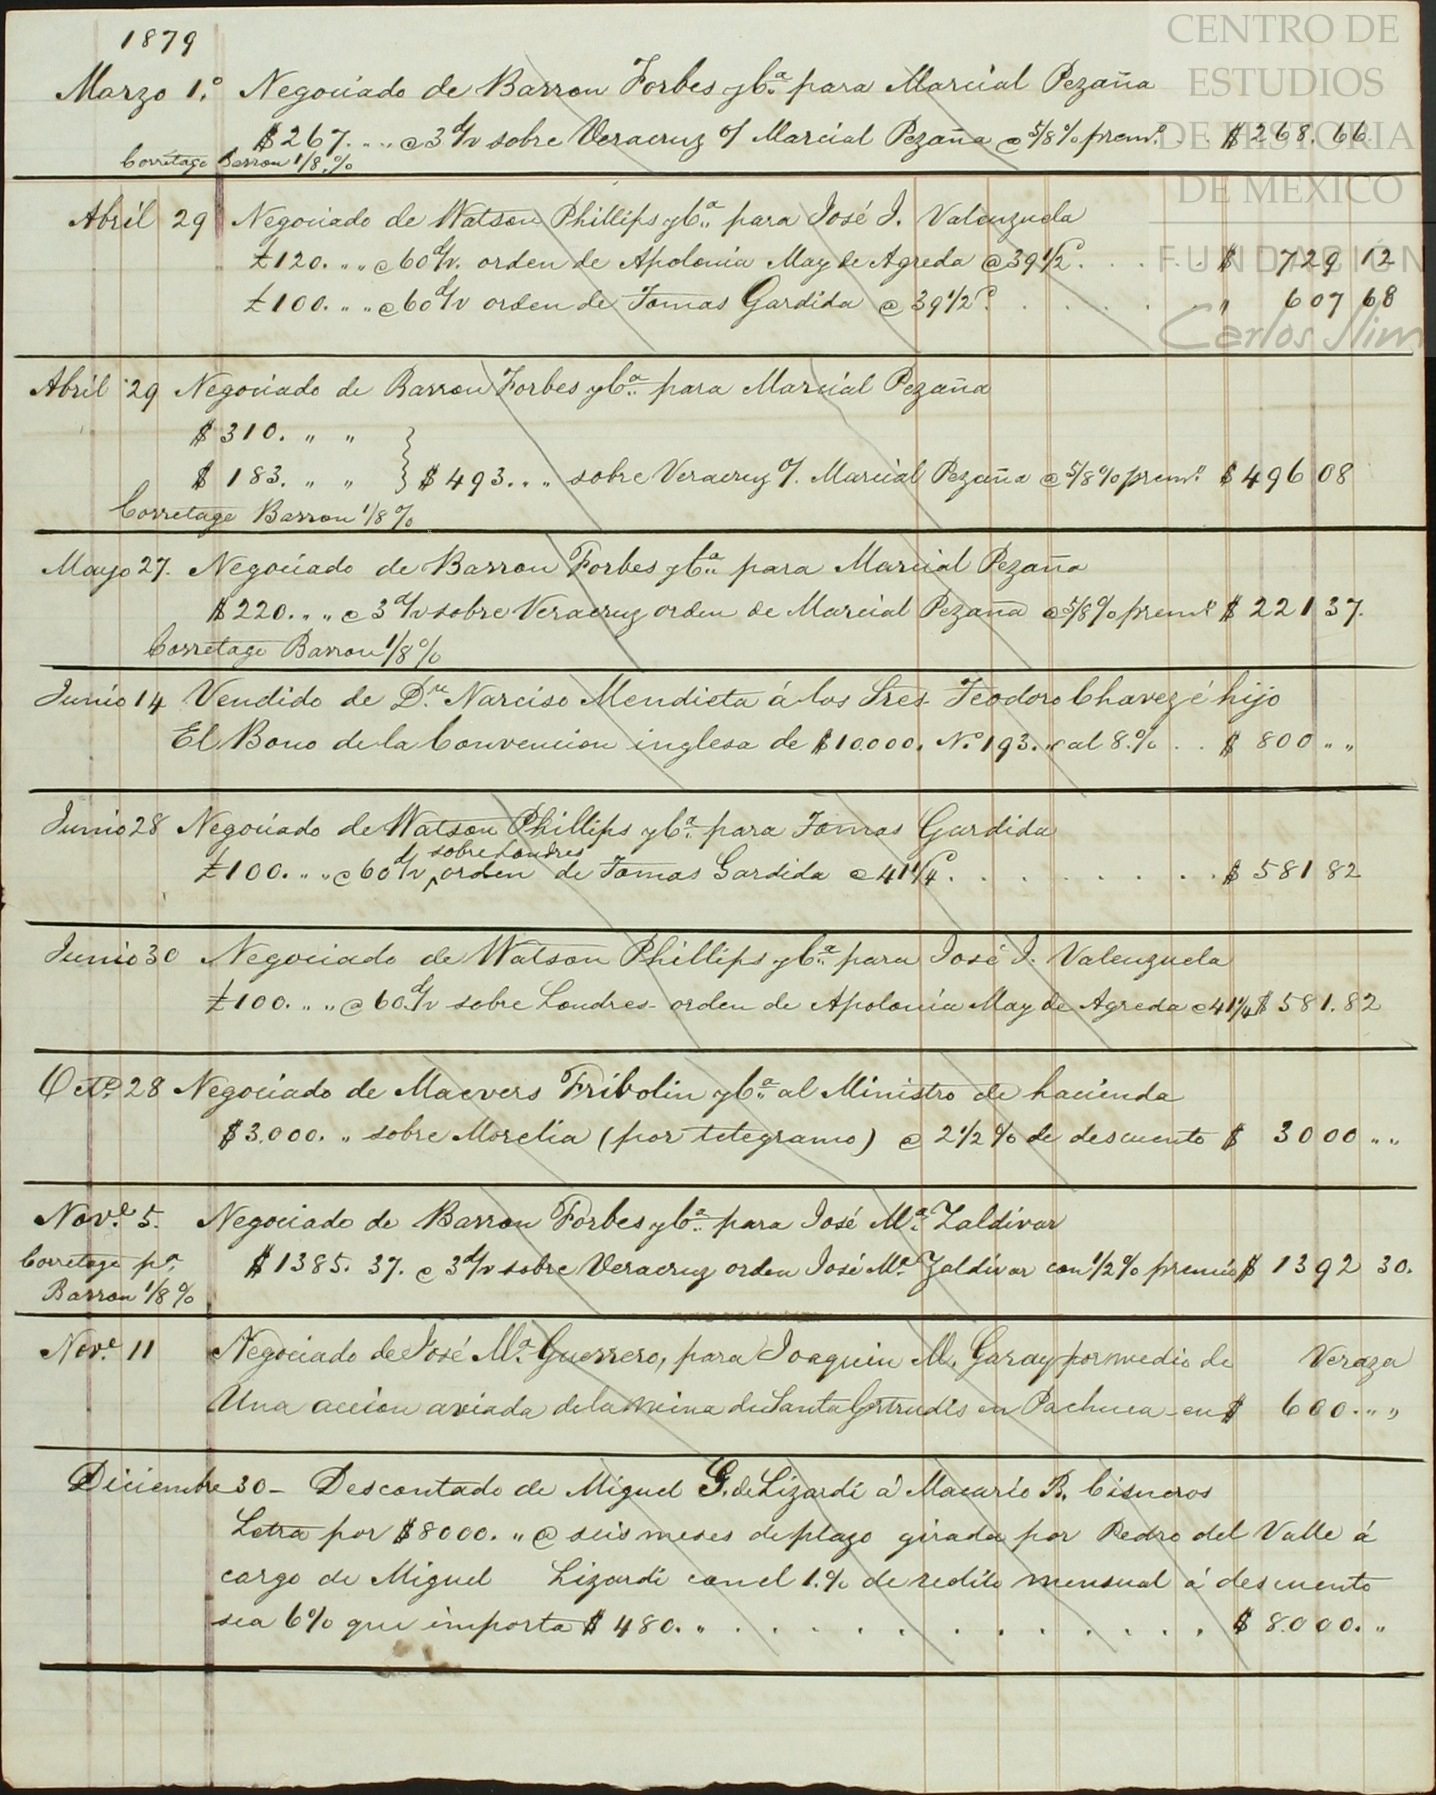 1879
Marzo 1.º Negociado de Barron Forbes y Cª para Marcial Pezaña
$267. „ „ @ 3 d/v sobre Veracruz o/ Marcial Pezaña @ 5/8 % prem.º . . $268.66
Corretage Barron 1/8. %
Abril 29 Negociado de Watson Phillips y Cª para José J. Valenzuela
£120. „ „ @ 60 d/v. orden de Apolonia May de Agreda @ 39 1/2 . . . . . . $ 729 12
£100. „ „ @ 60 d/v orden de Tomas Gardida @ 39 1/2 . . . . . . „ 607 68
Abril 29 Negociado de Barron Forbes y Cª para Marcial Pezaña
$310. „ „
$183. „ „ } $493. „ „ sobre Veracruz o/. Marcial Pezaña @ 5/8 % prem.º $496 08
Corretage Barron 1/8 %
Mayo 27. Negociado de Barron Forbes y Cª para Marcial Pezaña
$220. „ „ @ 3 d/v sobre Veracruz orden de Marcial Pezaña @ 5/8 % prem.º $221 37.
Corretage Barron 1/8 %
Junio 14 Vendido de D.n Narciso Mendieta á los Sres. Teodoro Chavez é hijo
El Bono de la Convencion inglesa de $10.000. N.º 193. „ al 8.% . . $ 800 „ „
Junio 28 Negociado de Watson Phillips y Cª para Tomas Gardida
sobre Londres
£100. „ „ @ 60 d/v orden de Tomas Gardida @ 41 1/4 . . . . . . . . . $ 581 82
Junio 30 Negociado de Watson Phillips y Cª para José J. Valenzuela
£100. „ „ @ 60 d/v sobre Londres orden de Apolonia May de Agreda @ 41 1/4 $ 581.82
Oct.e 28 Negociado de Maevers Fribolin y Cª al Ministro de hacienda
$3.000. „ sobre Morelia (por telegramo) @ 2 1/2 % de descuento $ 3000 „ „
Nov.e 5. Negociado de Barron Forbes y Cª para José M.ª Zaldivar
Corretage p.r $1385. 37. @ 3 d/v sobre Veracruz orden José M.ª Zaldivar con 1/2 % premio $ 1392 30.
Barron 1/8 %
Nov.e 11 Negociado de José M.ª Guerrero, para Joaquin M. Garay por medio de Veraza
Una accion aviada de la mina de Santa Gertrudis en Pachuca - en $ 600. „ „
Diciembre 30 - Descontado de Miguel G. de Lizardi á Macario R. Cisneros
Letra por $8000. „ @ seis meses de plazo girada por Pedro del Valle á
cargo de Miguel Lizardi con el 1.% de redito mensual á descuento
sea 6% que importa $ 480. „ . . . . . . . . . . . . . $ 8.000. „
CENTRO DE
ESTUDIOS
DE HISTORIA
DE MEXICO
FUNDACIÓN
Carlos Slim